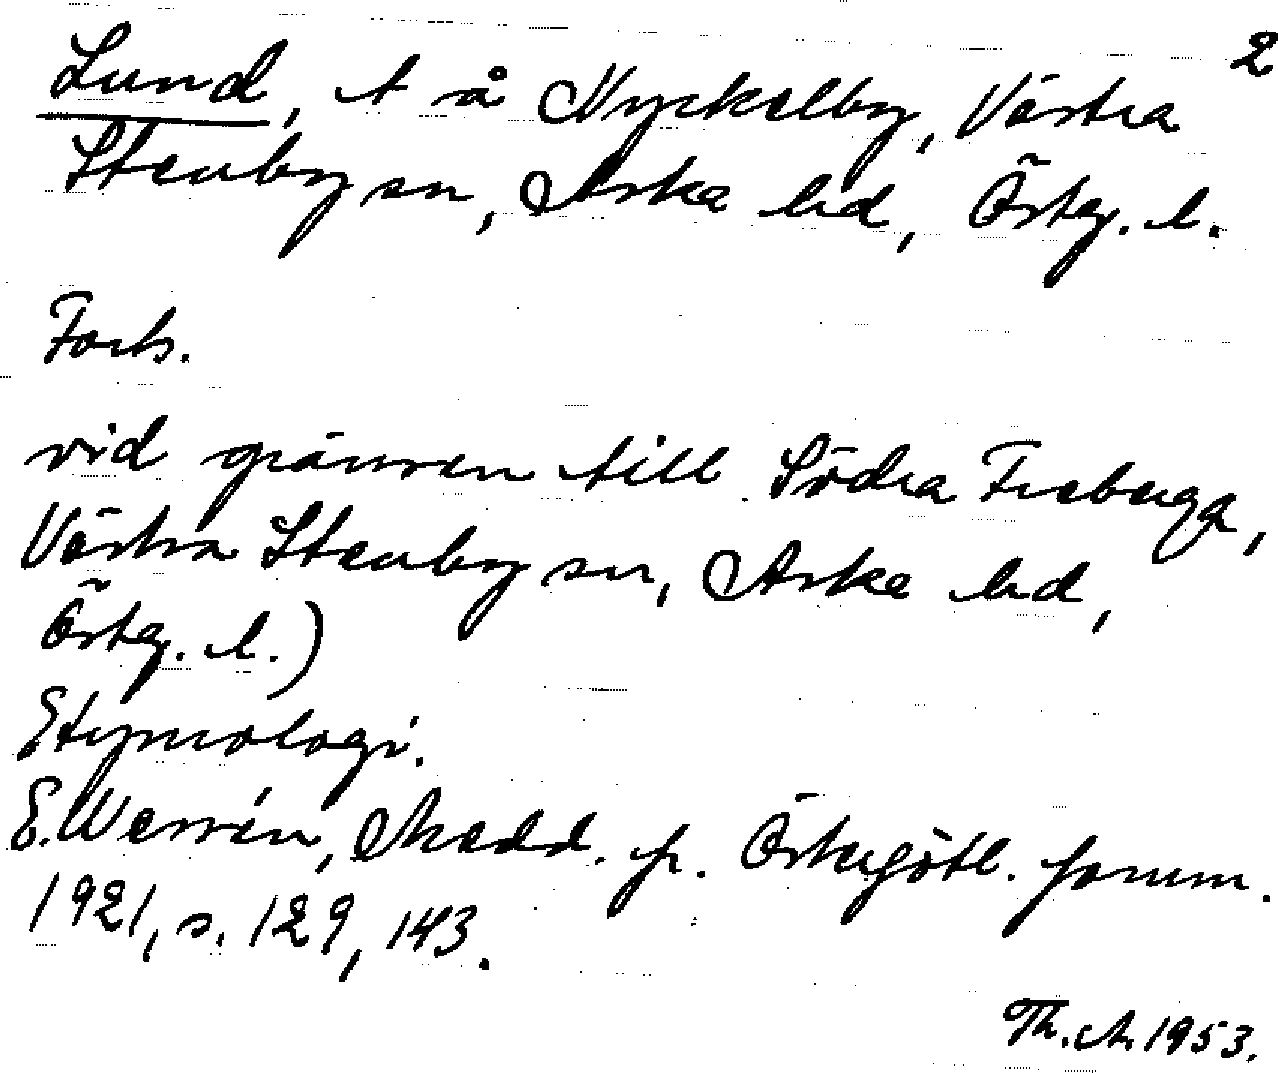 2
Lund, t på Nyckelby, Västra
Stenby sn, Aska hd, Östg. l.
Forts.
vid gränsen till Södra Freberga,
Västra Stenby sn, Aska hd,
Östg. l.)
Etymologi.
E. Wessén, Medd. fr. Östergötl. fornm.
1921, s. 129, 143.
Th. A. 1953.